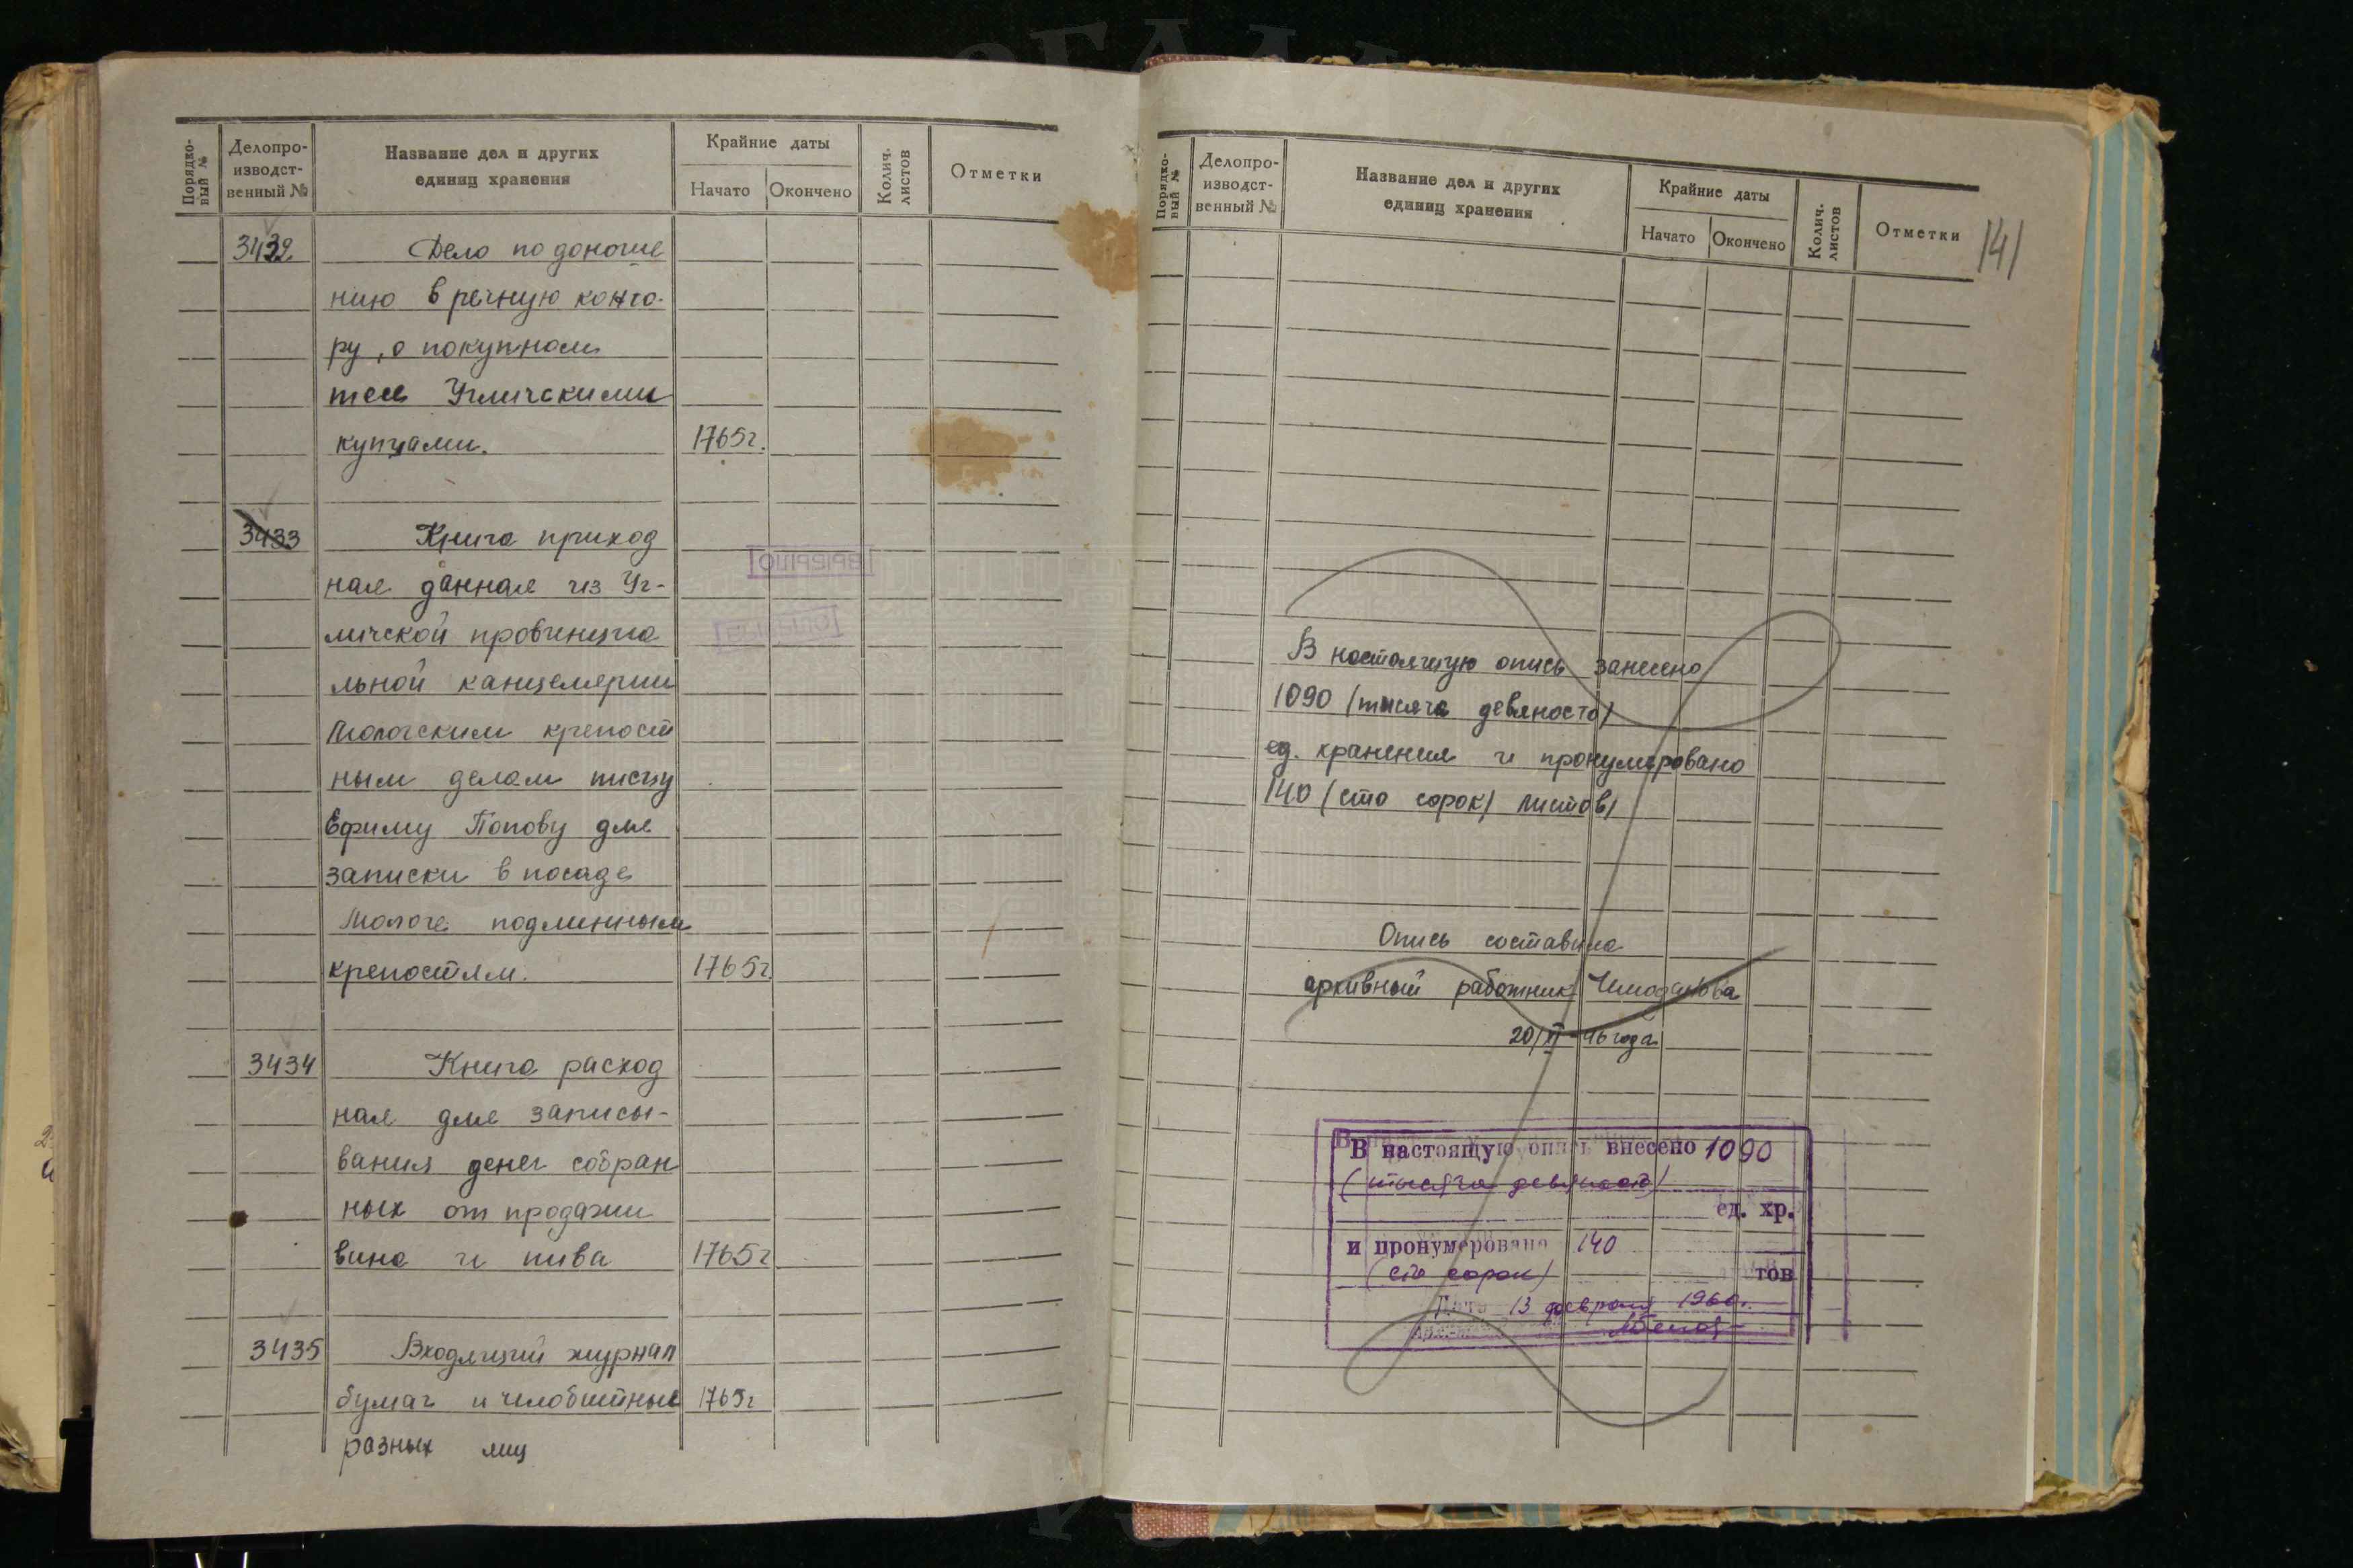 Порядко-
вый №
Делопро-
изводст-
венный №
Название дел и других
единиц хранения
Крайние даты
Начато
Окончено
Колич.
листов
Отметки
3432
Дело по доноше
нию в речную конто-
ру, о покупном
тесе Угличскими
купцами.
1765г.
3433
Книга приход
ная данная из Уг-
личской провинциа
льной канцелярии
Мологским крепост
ным делам писцу
Ефиму Попову для
записки в посаде
Мологе подлинным
крепостям.
1765г
3434
Книга расход
ная для записы-
вания денег собран
ных от продажи
вина и пива
1765г
3435
Входящий журнал
бумаг и челобитные
1765г
разных лиц
Порядко-
вый №
Делопро-
изводст-
венный №
Название дел и других
единиц хранения
Крайние даты
Начато
Окончено
Колич.
листов
Отметки
141
В настоящую опись занесено
1090 (тысяча девяносто)
ед. хранения и пронумеровано
140 (сто сорок) листов)
Опись составила
архивный работник Чемоданова
20/XI-46 года
В настоящую опись внесено 1090
(тысяча девяносто)
ед. хр.
и пронумеровано 140
(сто сорок)
тов
Дата 13 февраля 1960г.